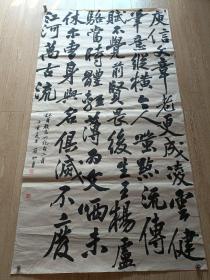 庾信文章老更成凌雲健
筆意縱橫今人嗤點流傳
賦不覺前賢畏後生王楊盧
駱當時體輕薄為文哂未
休爾曹身與名俱滅不廢
江河萬古流